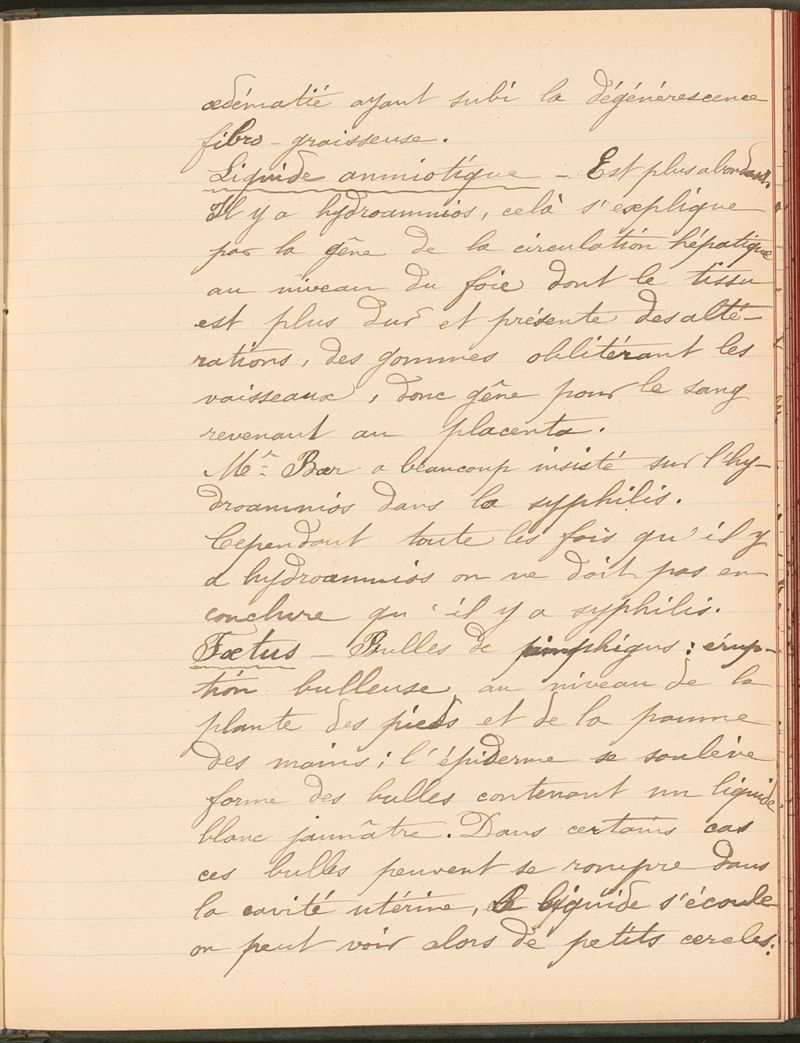 œdématié ayant subi la dégénérescence
fibro-graisseuse.
Liquide amniotique - Est plus abondant.
Il y a hydroamnios, celà s'explique
par la gêne de la circulation hépatique
au niveau du foie dont le tissu
est plus dur et présente des alté-
rations, des gommes oblitérant les
vaisseaux, donc gêne pour le sang
revenant au placenta.
Mr Bar a beaucoup insisté sur l'hy-
droamnios dans la syphilis.
Cependant toute les fois qu'il y
a hydroamnios on ne doit pas en
conclure qu'il y a syphilis.
Fœtus - Bulles de pimphigus : érup-
tion bulleuse au niveau de la
plante des pieds et de la paume
des mains ; l'épiderme se soulève
forme des bulles contenant un liquide
blanc jaunâtre. Dans certains cas
ces bulles peuvent se rompre dans
la cavité utérine, le liquide s'écoule
on peut voir alors de petits cercles.